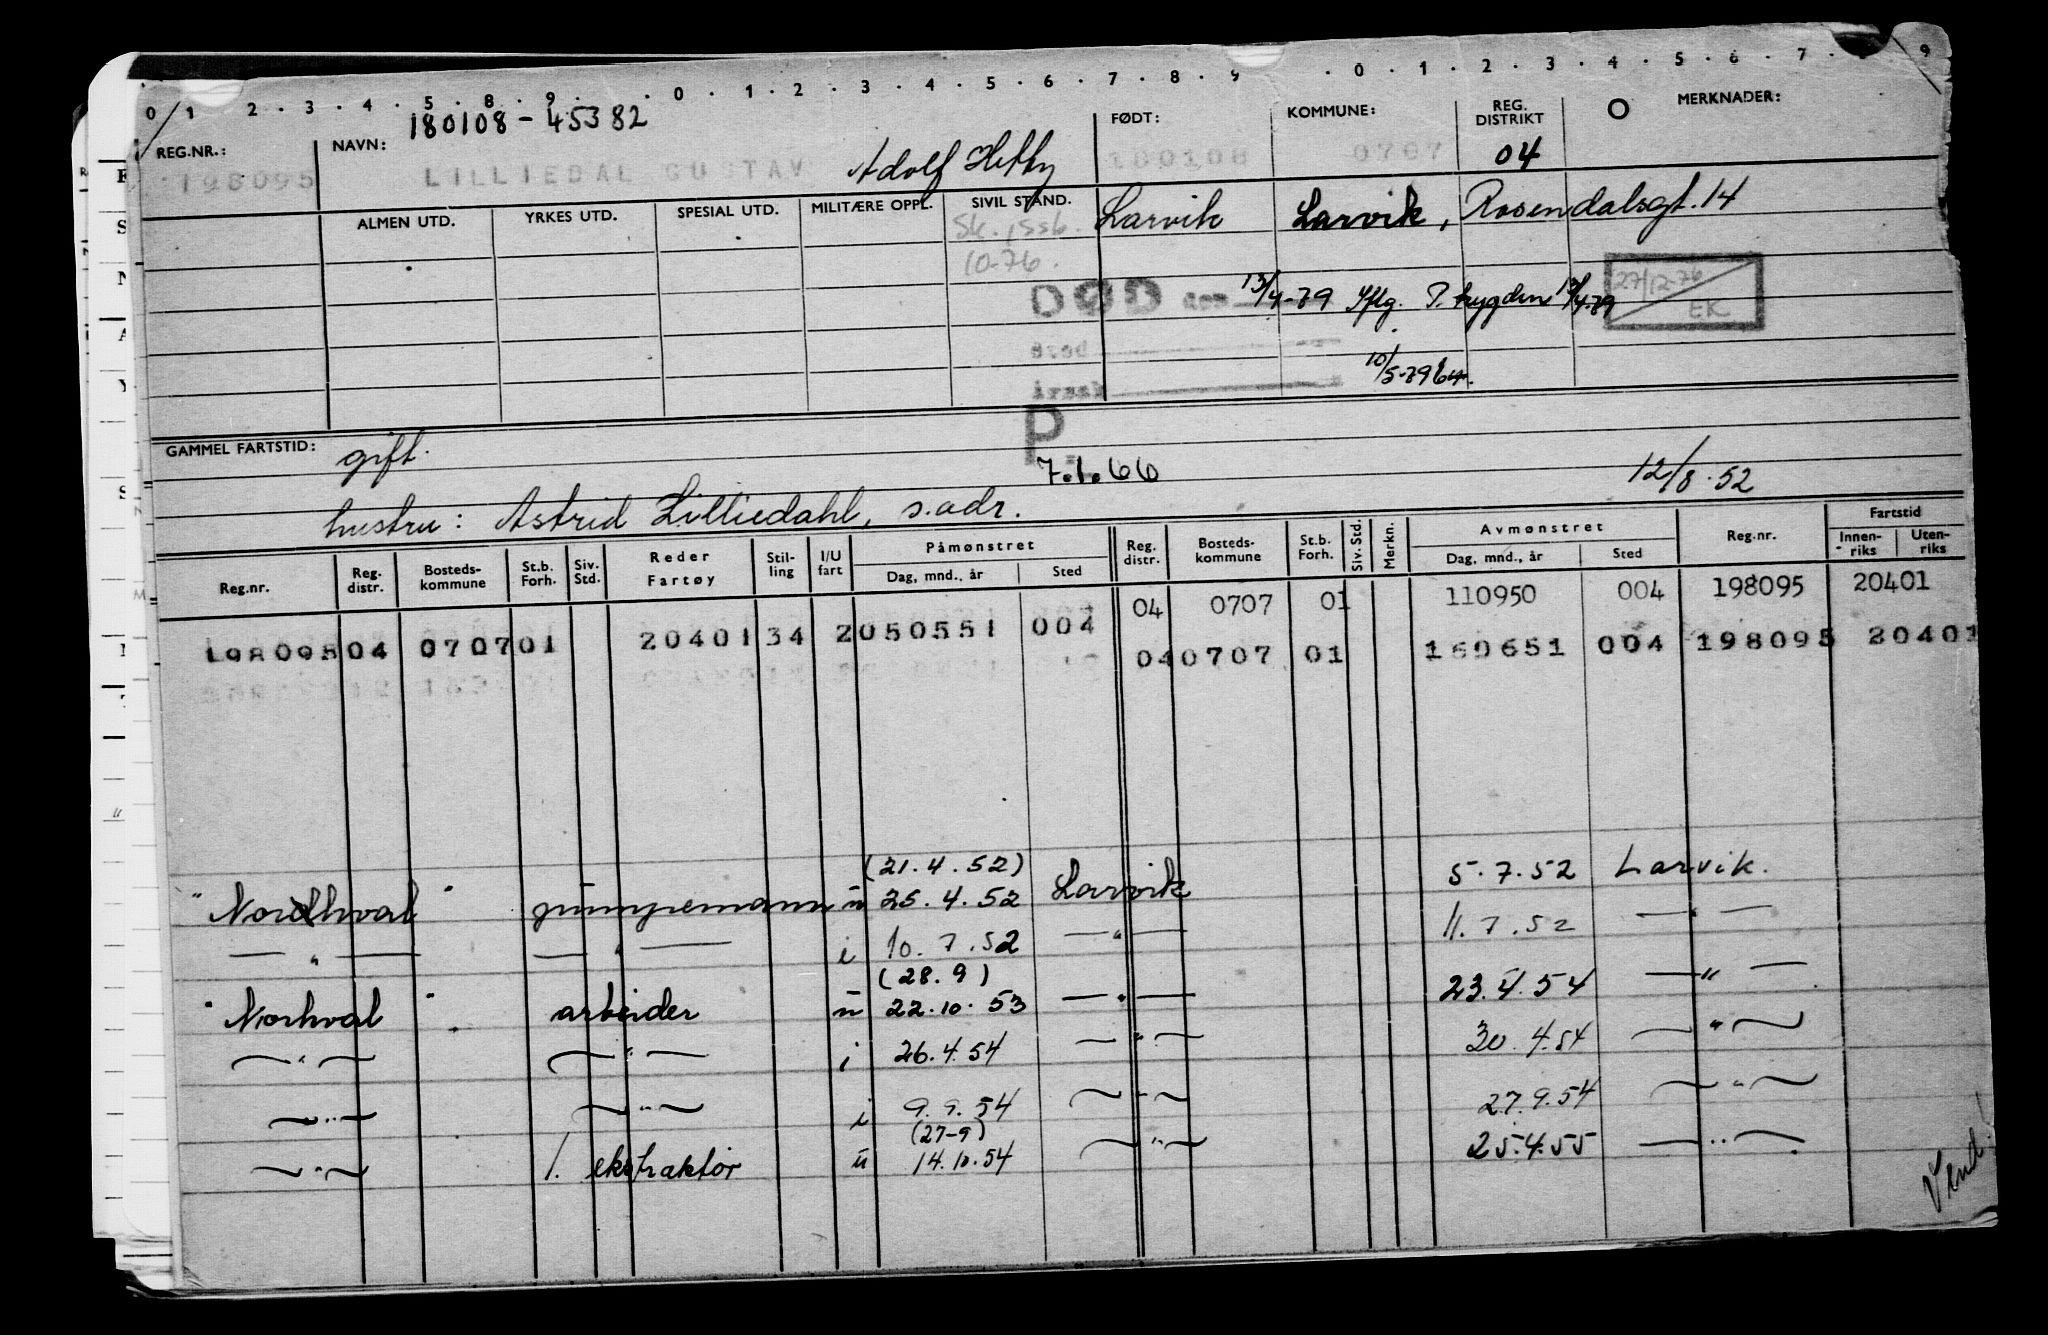 0 / 1 . 2 . 3 . 4 . 5 . 8 . 9 . . 0 . 1 . 2 . 3 . 4 . 5 . 6 . 7 . 8 . 9 . 0 . 1 . 2 . 3 . 4 . 5 . 6 . 7 . 9
REG.NR.: NAVN: 180108 - 45382 FØDT: KOMMUNE: REG. DISTRIKT O MERKNADER:
198095 LILLIEDAL GUSTAV Adolf 180108 0707 04
ALMEN UTD. YRKES UTD. SPESIAL UTD. MILITÆRE OPPL. SIVIL STAND. Larvik Larvik, Rosendalsgt. 14
Sk. , Ssb.
10-76.
DØD den 13/4-79 Iflg. P. trygden 19/4-79 27/12-76 EK
Sted
Årsak 10/5-79
P.
GAMMEL FARTSTID: gift.
7.1.66 12/8.52
hustru : Astrid Lilliedahl, s.adr.
Reg.nr. Reg. distr. Bosteds- kommune St.b. Forh. Siv. Std. Reder Fartøy Stil- ling I/U fart Påmønstret Dag, mnd., år Sted Reg. distr. Bosteds- kommune St.b. Forh. Siv. Std. Merkn. Avmønstret Dag, mnd., år Sted Reg.nr. Fartstid Innen- riks Uten- riks
04 0707 01 110950 004 198095 20401
198095 04 0707 01 20401 34 2 050551 004 04 0707 01 160651 004 198095 20401
(21.4.52)
"Nordhval" pumpemann u 25.4.52 Larvik 5.7.52 Larvik.
— " — — " — i 10.7.52 — " — 11.7.52 — " —
(28.9)
"Norhval" arbeider u 22.10.53 — " — 23.4.54 — " —
— " — — " — i 26.4.54 — " — 30.4.54 — " —
— " — — " — i 9.9.54 — " — 27.9.54 — " —
(27-9)
— " — 1. ekstraktør u 14.10.54 — " — 25.4.55 — " —
Vend!